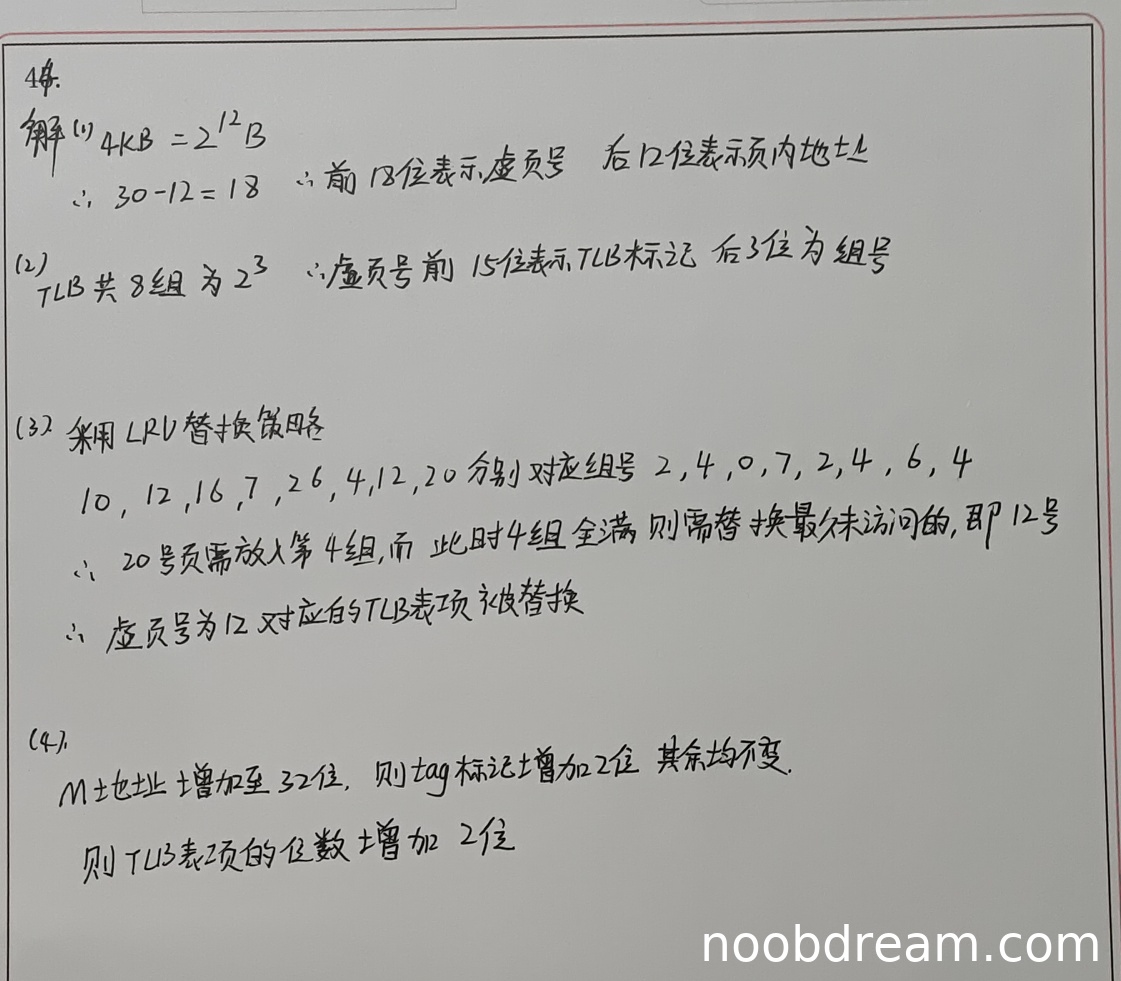 44.
解(1) 4KB = 2^12 B
∴ 30-12=18 ∴前18位表示虚页号 后12位表示页内地址
(2) TLB共8组为2^3 ∴虚页号前15位表示TLB标记 后3位为组号
(3) 采用LRU替换策略
10, 12, 16, 7, 26, 4, 12, 20 分别对应组号 2, 4, 0, 7, 2, 4, 6, 4
∴ 20号页需放入第4组,而此时4组全满则需替换最久未访问的,即12号
∴ 虚页号为12对应的TLB表项被替换
(4).
M地址增加至32位. 则tag标记增加2位 其余均不变.
则TLB表项的位数增加2位
noobdream.com